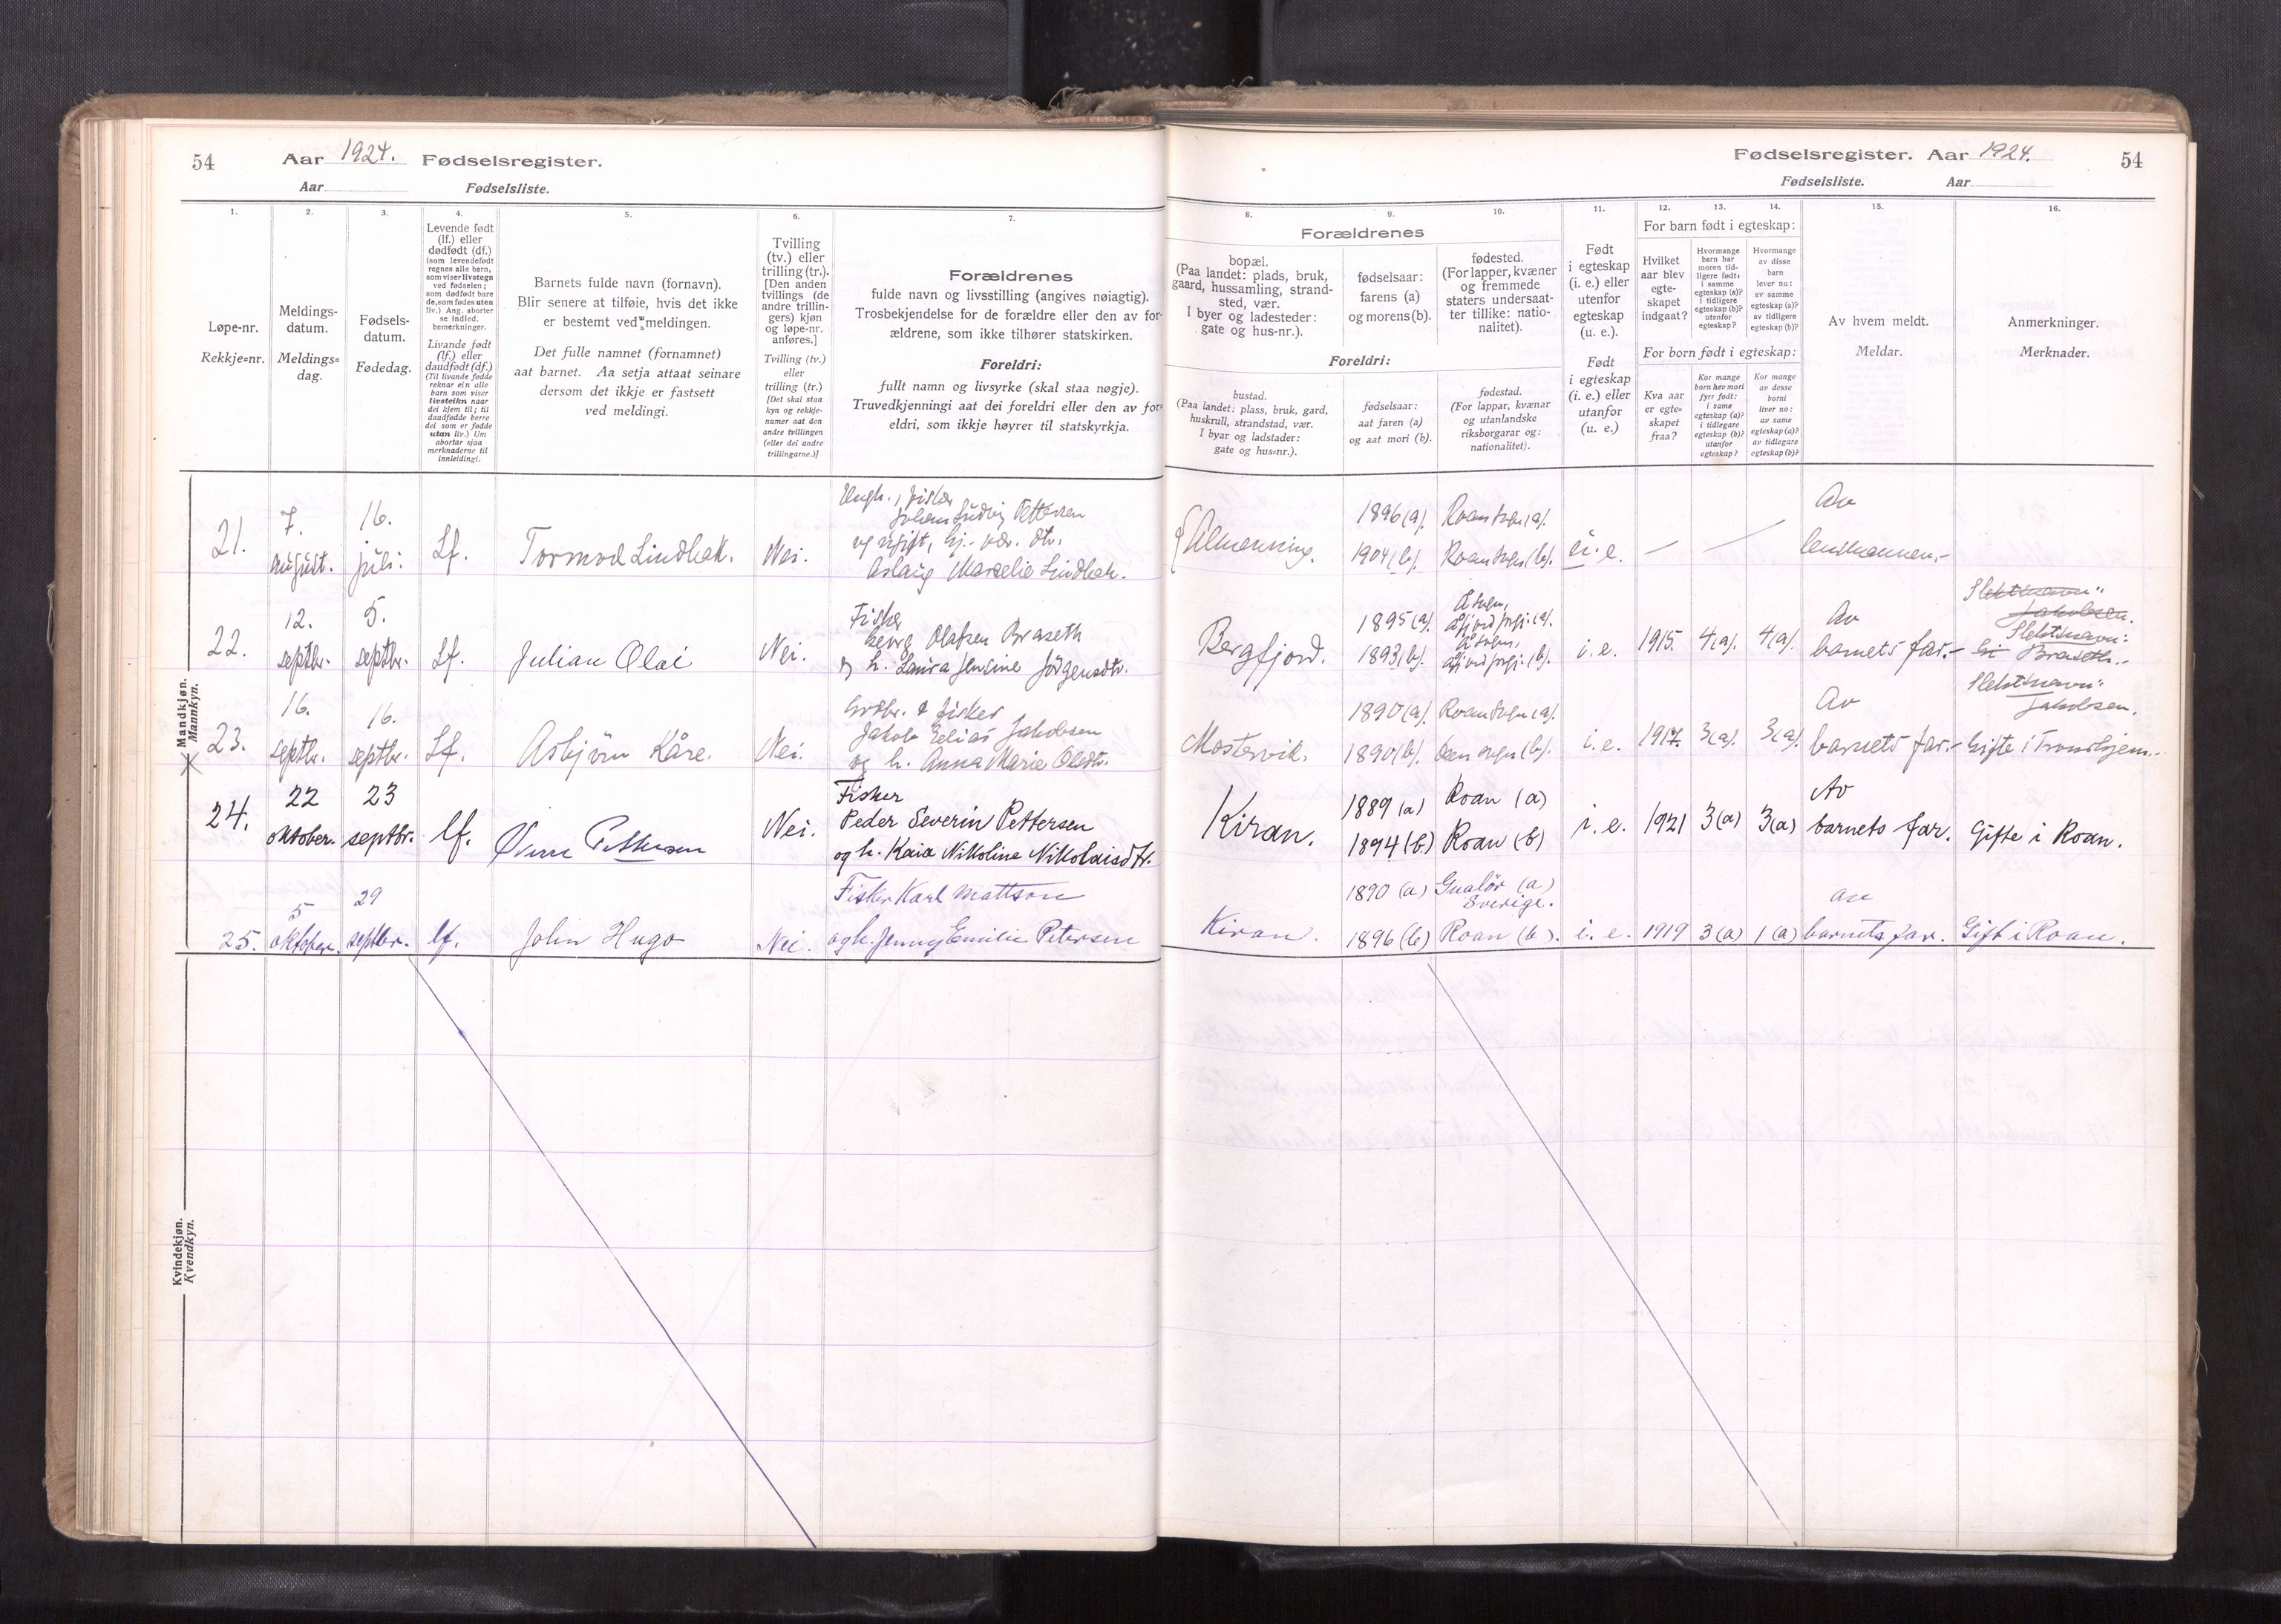 54 Aar 1924. Fødselsregister.
Aar Fødselsliste.
Fødselsregister. Aar 1924. 54
Fødselsliste. Aar
1. 2. 3. 4. 5. 6. 7.
Løpe-nr.
Rekkje=nr.
Meldings-
datum.
Meldings=
dag.
Fødsels-
datum.
Fødedag.
Levende født
(lf.) eller
dødfødt (df.)
(som levendefødt
regnes alle barn,
som viser livstegn
ved fødselen;
som dødfødt bare
de, som fødes uten
liv.) Ang. aborter
se indled.
bemerkninger.
Livande født
(lf.) eller
daudfødt (df.)
(Til livande fødde
reknar ein alle
barn som viser
livsteikn naar
dei kjem til; til
daudfødde berre
dei som er fødde
utan liv.) Um
abortar sjaa
merknaderne til
innleidingi.
Barnets fulde navn (fornavn).
Blir senere at tilføie, hvis det ikke
er bestemt ved meldingen.
Det fulle namnet (fornamnet)
aat barnet. Aa setja attaat seinare
dersom det ikkje er fastsett
ved meldingi.
Tvilling
(tv.) eller
trilling (tr.).
[Den anden
tvillings (de
andre trillin-
gers) kjøn
og løpe-nr.
anføres.]
Tvilling (tv.)
eller
trilling (tr.)
[Det skal staa
kyn og rekkje-
numer aat den
andre tvillingen
(eller dei andre
trillingarne.)]
Forældrenes
fulde navn og livsstilling (angives nøiagtig).
Trosbekjendelse for de forældre eller den av for-
ældrene, som ikke tilhører statskirken.
Foreldri:
fullt namn og livsyrke (skal staa nøgje).
Truvedkjenningi aat dei foreldri eller den av for-
eldri, som ikkje høyrer til statskyrkja.
8. 9. 10. 11. 12. 13. 14. 15. 16.
Forældrenes
bopæl.
(Paa landet: plads, bruk,
gaard, hussamling, strand-
sted, vær.
I byer og ladesteder:
gate og hus-nr.).
fødselsaar:
farens (a)
og morens (b).
fødested.
(For lapper, kvæner
og fremmede
staters undersaat-
ter tillike: natio-
nalitet).
Foreldri:
bustad.
(Paa landet: plass, bruk, gard,
huskrull, strandstad, vær.
I byar og ladstader:
gate og hus=nr.).
fødselsaar:
aat faren (a)
og aat mori (b).
fødestad.
(For lappar, kvænar
og utanlandske
riksborgarar og:
nationalitet).
Født
i egteskap
(i. e.) eller
utenfor
egteskap
(u. e.).
Født
i egteskap
(i. e.) eller
utanfor
(u. e.)
For barn født i egteskap:
Hvilket
aar blev
egte-
skapet
indgaat?
Hvormange
barn har
moren tid-
ligere født:
i samme
egteskap (a)?
i tidligere
egteskap (b)?
utenfor
egteskap?
Hvormange
av disse
barn
lever nu:
av samme
egteskap (a)?
av tidligere
egteskap (b)?
For born født i egteskap:
Kva aar
er egte=
skapet
fraa?
Kor mange
born hev mori
fyrr født:
i same
egteskap (a)?
i tidlegare
egteskap (b)?
utanfor
egteskap?
Kor mange
av desse
borni
liver no:
av same
egteskap (a)?
av tidlegare
egteskap (b)?
Av hvem meldt.
Meldar.
Anmerkninger.
Merknader.
Mandkjøn.
Mannkyn.
21. 7. august. 16. juli. Lf. Tormod Lindbak. Nei.
Ungk., fisker
Johan Ludvig Pettersen
og ugift,
Aslaug Marselie Lindbak.
Almenning. 1896 (a). Roan sogn (a).
1904 (b). Roan sogn (b). u. e. — — Av
lensmannen.-
22. 12. septbr. 5. septbr. Lf. Julian Olai Nei.
Fisker
Georg Olafsen Braseth
og h. Laura Jensine Jörgensdtr.
Bergfjord. 1895 (a). Å sogn,
Åfjord prgj. (a).
1893 (b). Å sogn,
Åfjord prgj. (b). i. e. 1915. 4 (a). 4 (a). Av
barnets far.-
Slektsnavn:
Jakobsen.
Slektsnavn:
Gi Braseth.-
23. 16. septbr. 16. septbr. Lf. Asbjörn Kåre. Nei.
Grdbr. & fisker
Jakob Elias Jakobsen
og h. Anna Marie Olsdtr.
Mostervik. 1890 (a). Roan sogn (a).
1890 (b). sogn (b). i. e. 1917. 3 (a). 3 (a). Av
barnets far.-
Slektsnavn:
Jakobsen.
Gifte i Trondhjem.-
24. 22 oktober. 23 septbr. lf. Øivin Pettersen Nei.
Fisker
Peder Severin Pettersen
og h. Kaia Nikoline Nikolaisdtr.
Kiran. 1889 (a) Roan (a)
1894 (b) Roan (b) i. e. 1921 3 (a) 3 (a) Av
barnets far. Gifte i Roan.
25. 5 oktober. 29 septbr. lf. John Hugo Nei.
Fisker Karl Mattson
og h. Jenny Emilie Petersen
Kiran. 1890 (a) (a)
Sverige.
1896 (b) Roan (b). i. e. 1919 3 (a) 1 (a) av
barnets far. Gift i Roan.
Kvindekjøn.
Kvendkyn.